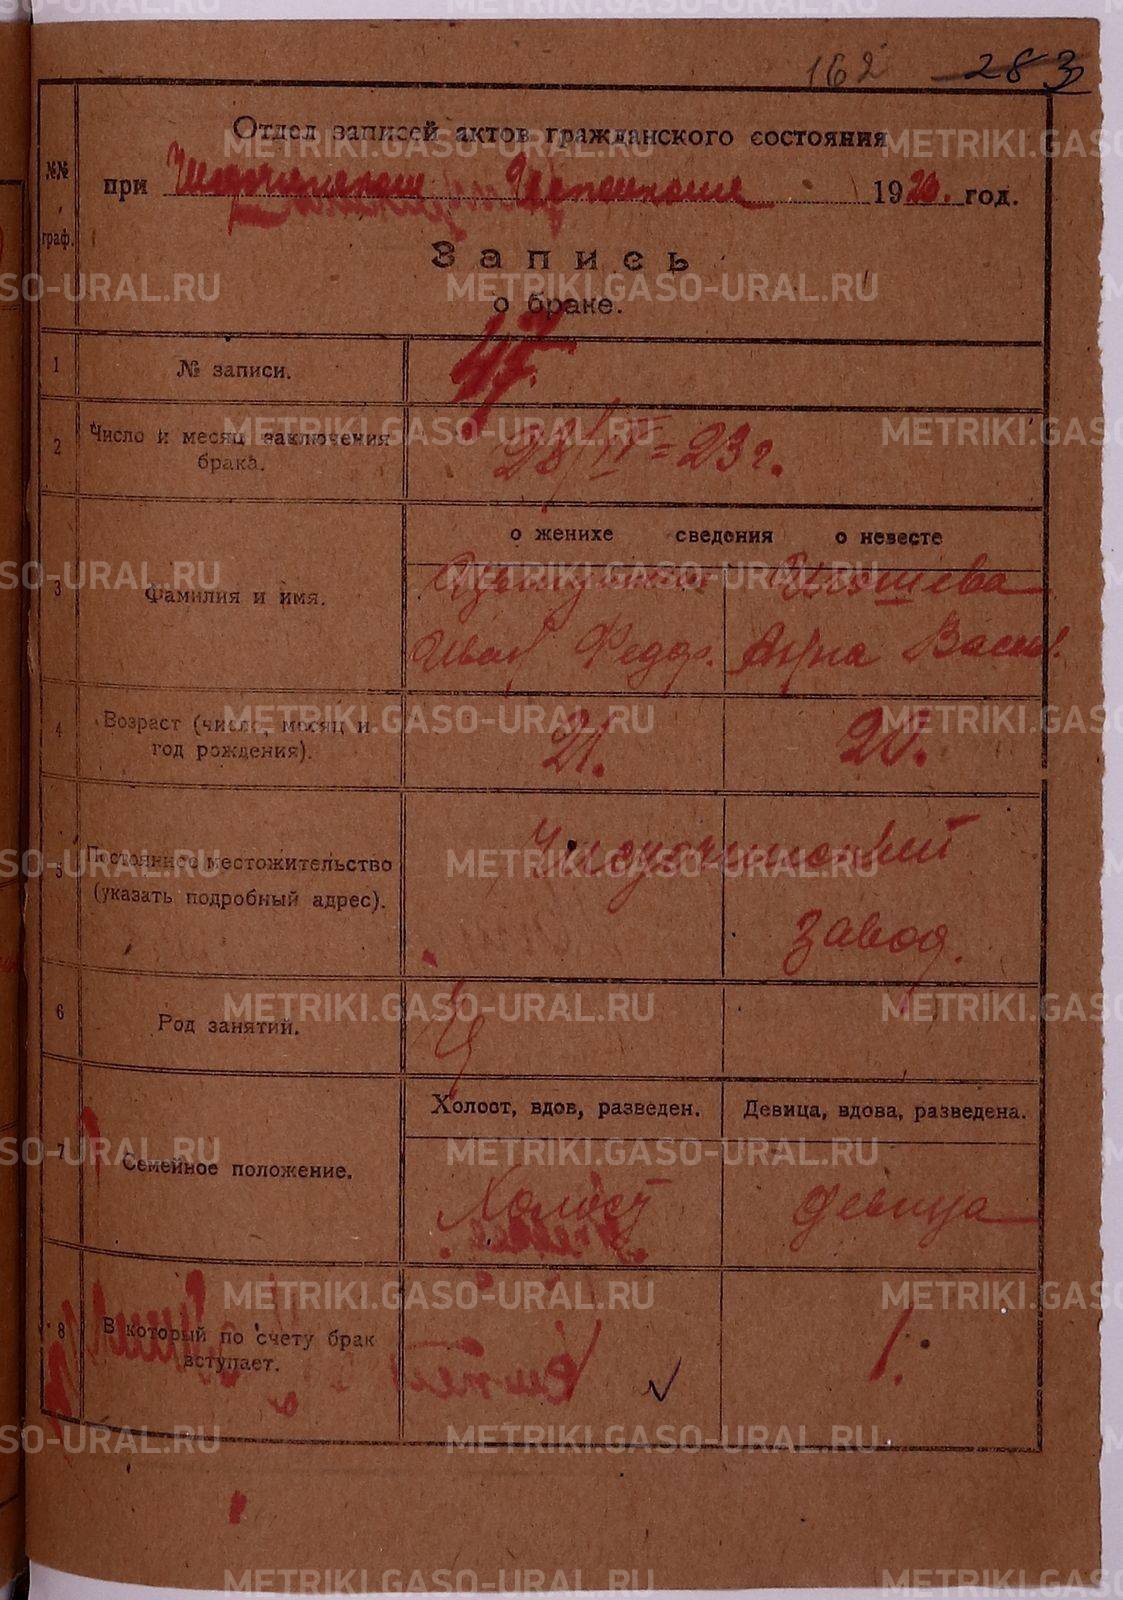 162 283
Отдел записей актов гражданского состояния
№№
граф.
при Исполкоме 1923. год.
Запись
о браке.
1 № записи. 47.
2 Число и месяц заключения
брака. 28/IV=23 г.
о женихе сведения о невесте
3 Фамилия и имя. Игошева
Иван Федор. Анна Васил.
4 Возраст (число, месяц и
год рождения). 21. 20.
5 Постоянное местожительство
(указать подробный адрес).
завод.
6 Род занятий.
Холост, вдов, разведен. Девица, вдова, разведена.
7 Семейное положение. Холост девица
8 В который по счету брак
вступает. 1.
METRIKI.GASO-URAL.RU